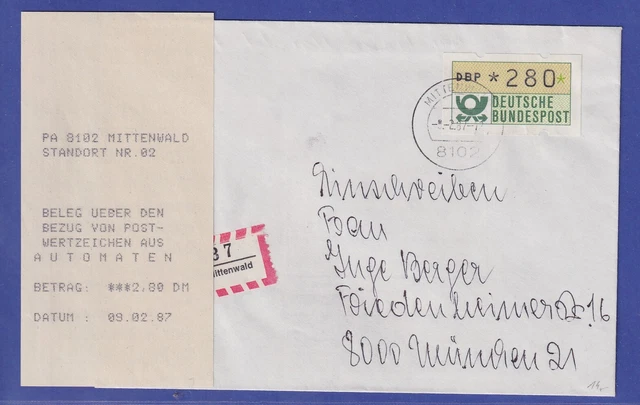 PA 8102 MITTENWALD
STANDORT NR.02
BELEG UEBER DEN
BEZUG VON POST-
WERTZEICHEN AUS
A U T O M A T E N
BETRAG: ***2,80 DM
DATUM : 09.02.87
DBP *280*
DEUTSCHE
BUNDESPOST
8102
37
Mittenwald
Einschreiben
Frau
Inge Berger
Friedenheimer Str. 16
8000 München 21